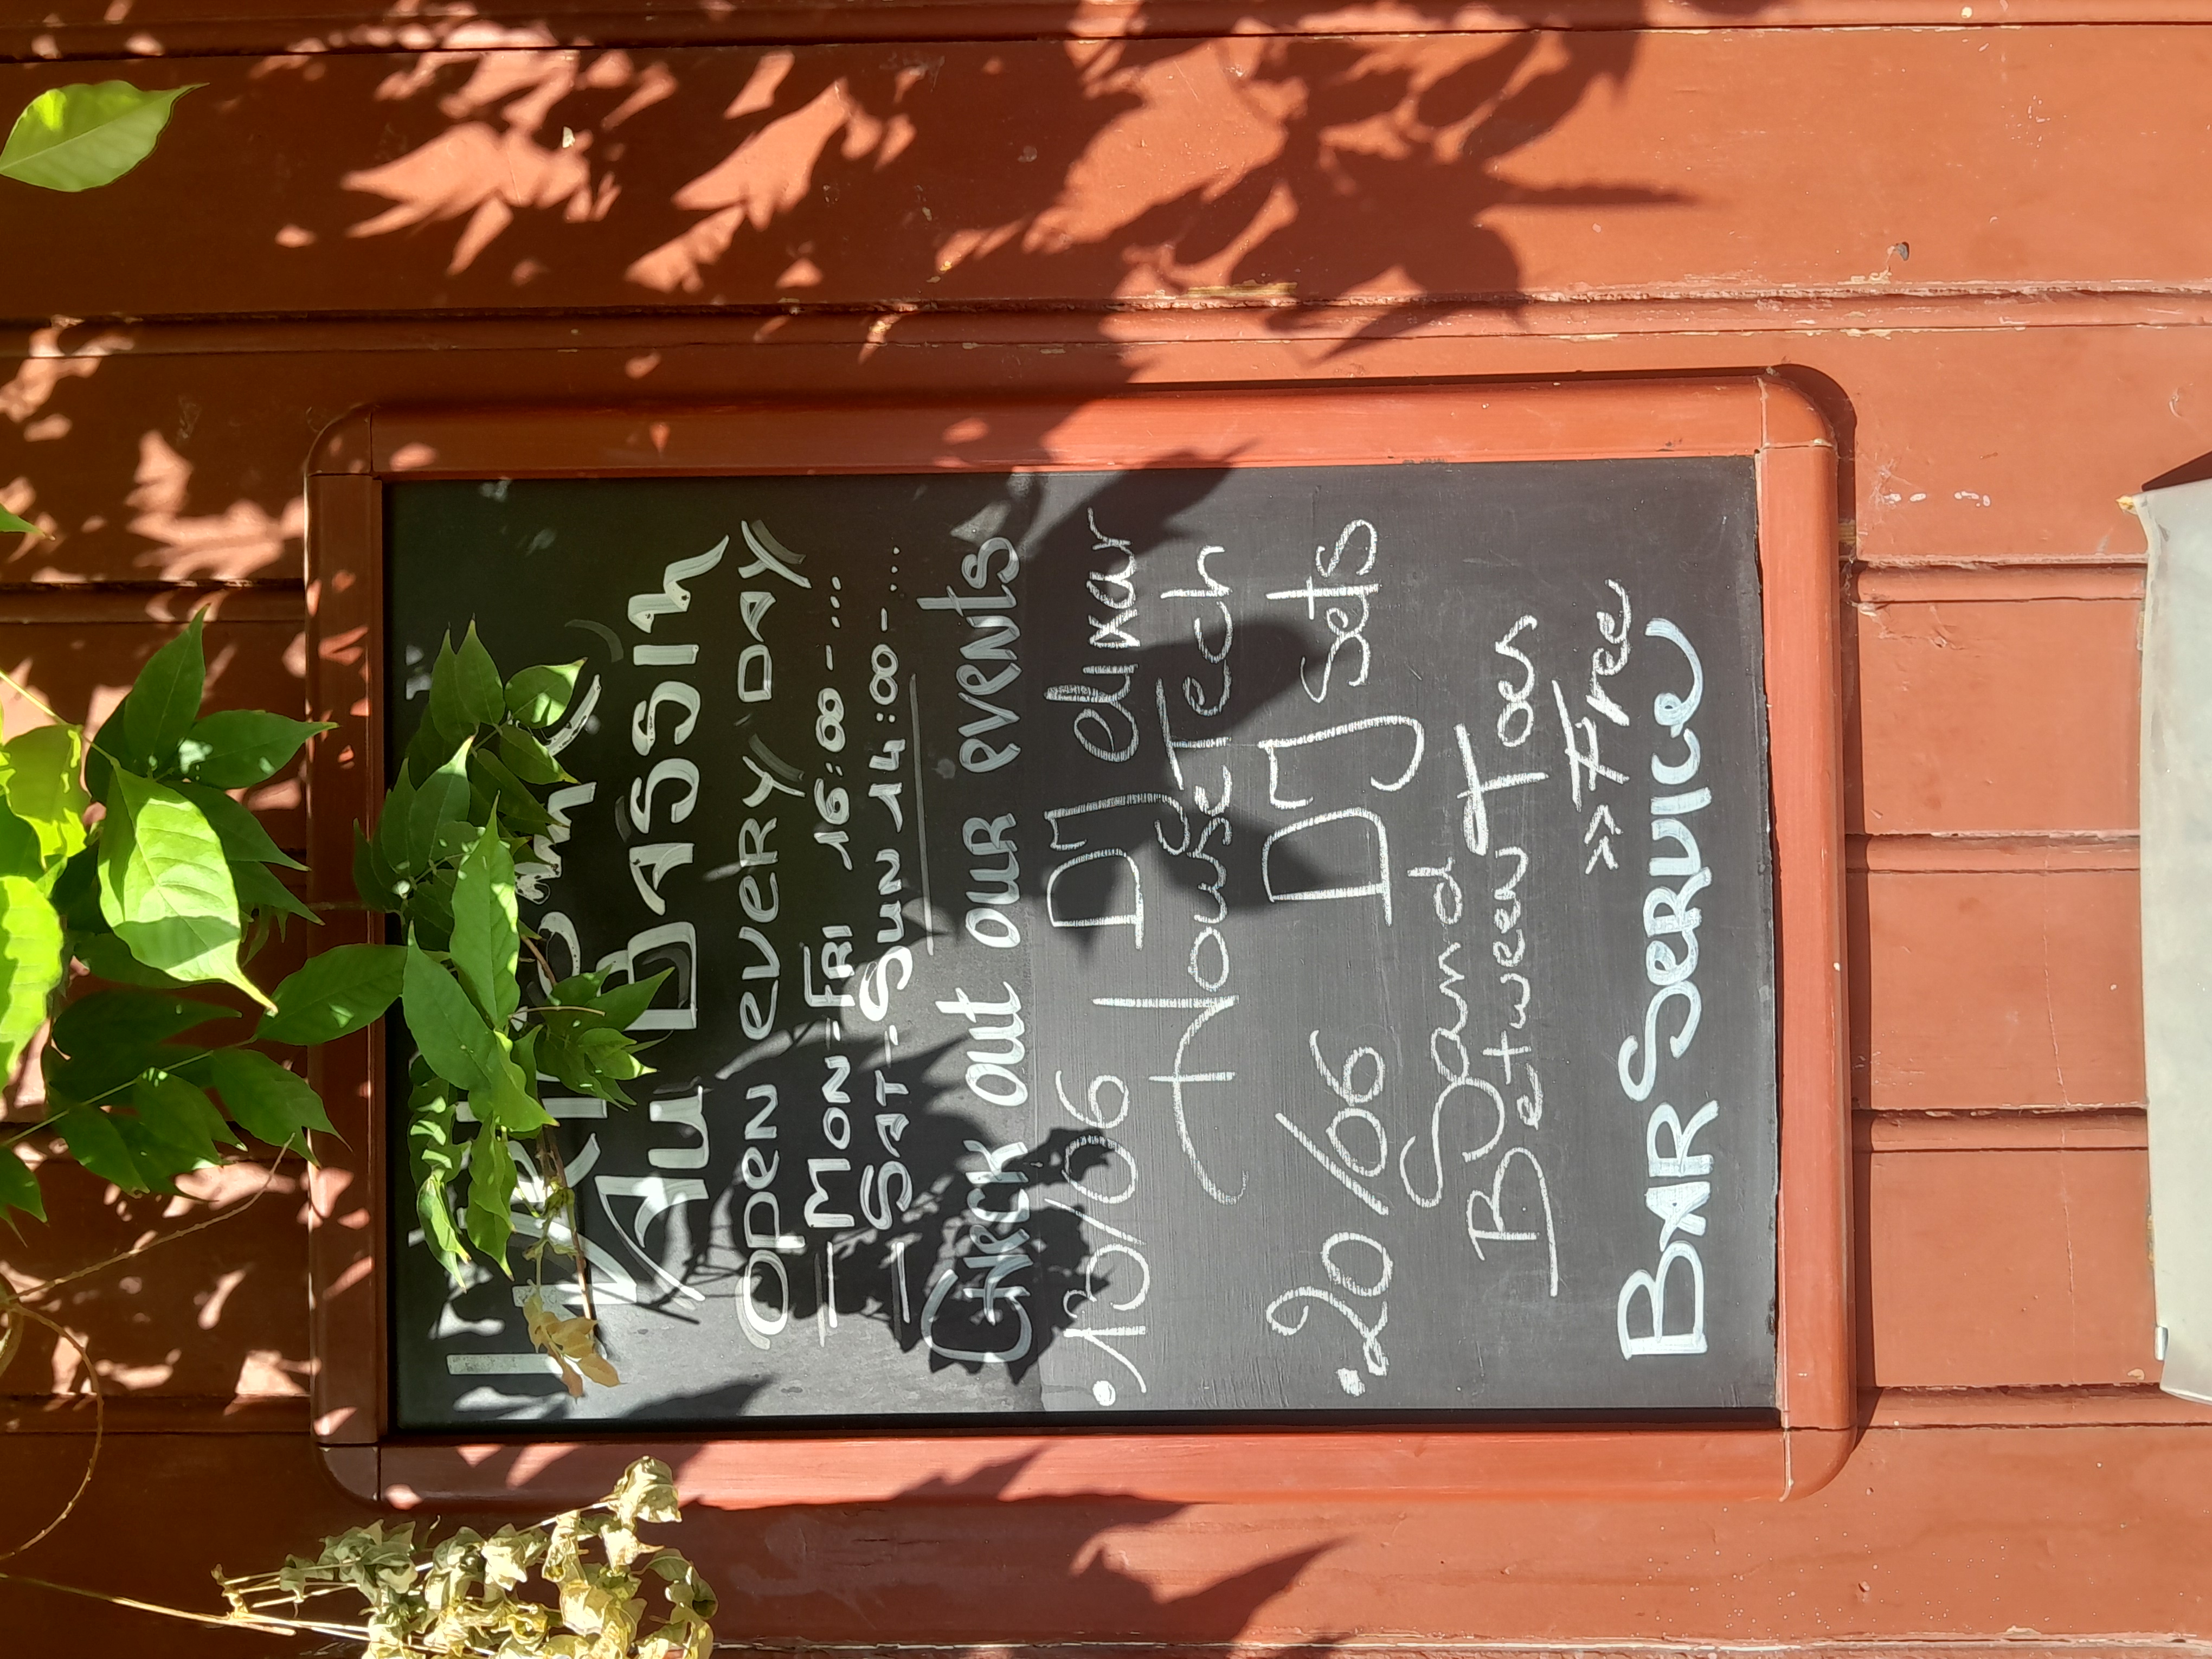 Au BASSiN
OPEN EVERY DAY
- MON - FRI 16:00 - ...
- SAT - SUN 14:00 - ...
CHECK out OUR EVENTS
• 13/06 DJ elixar
House Tech
• 20/06 DJ Sets
Sand
Between Toes
>> Free
BAR SERVICE